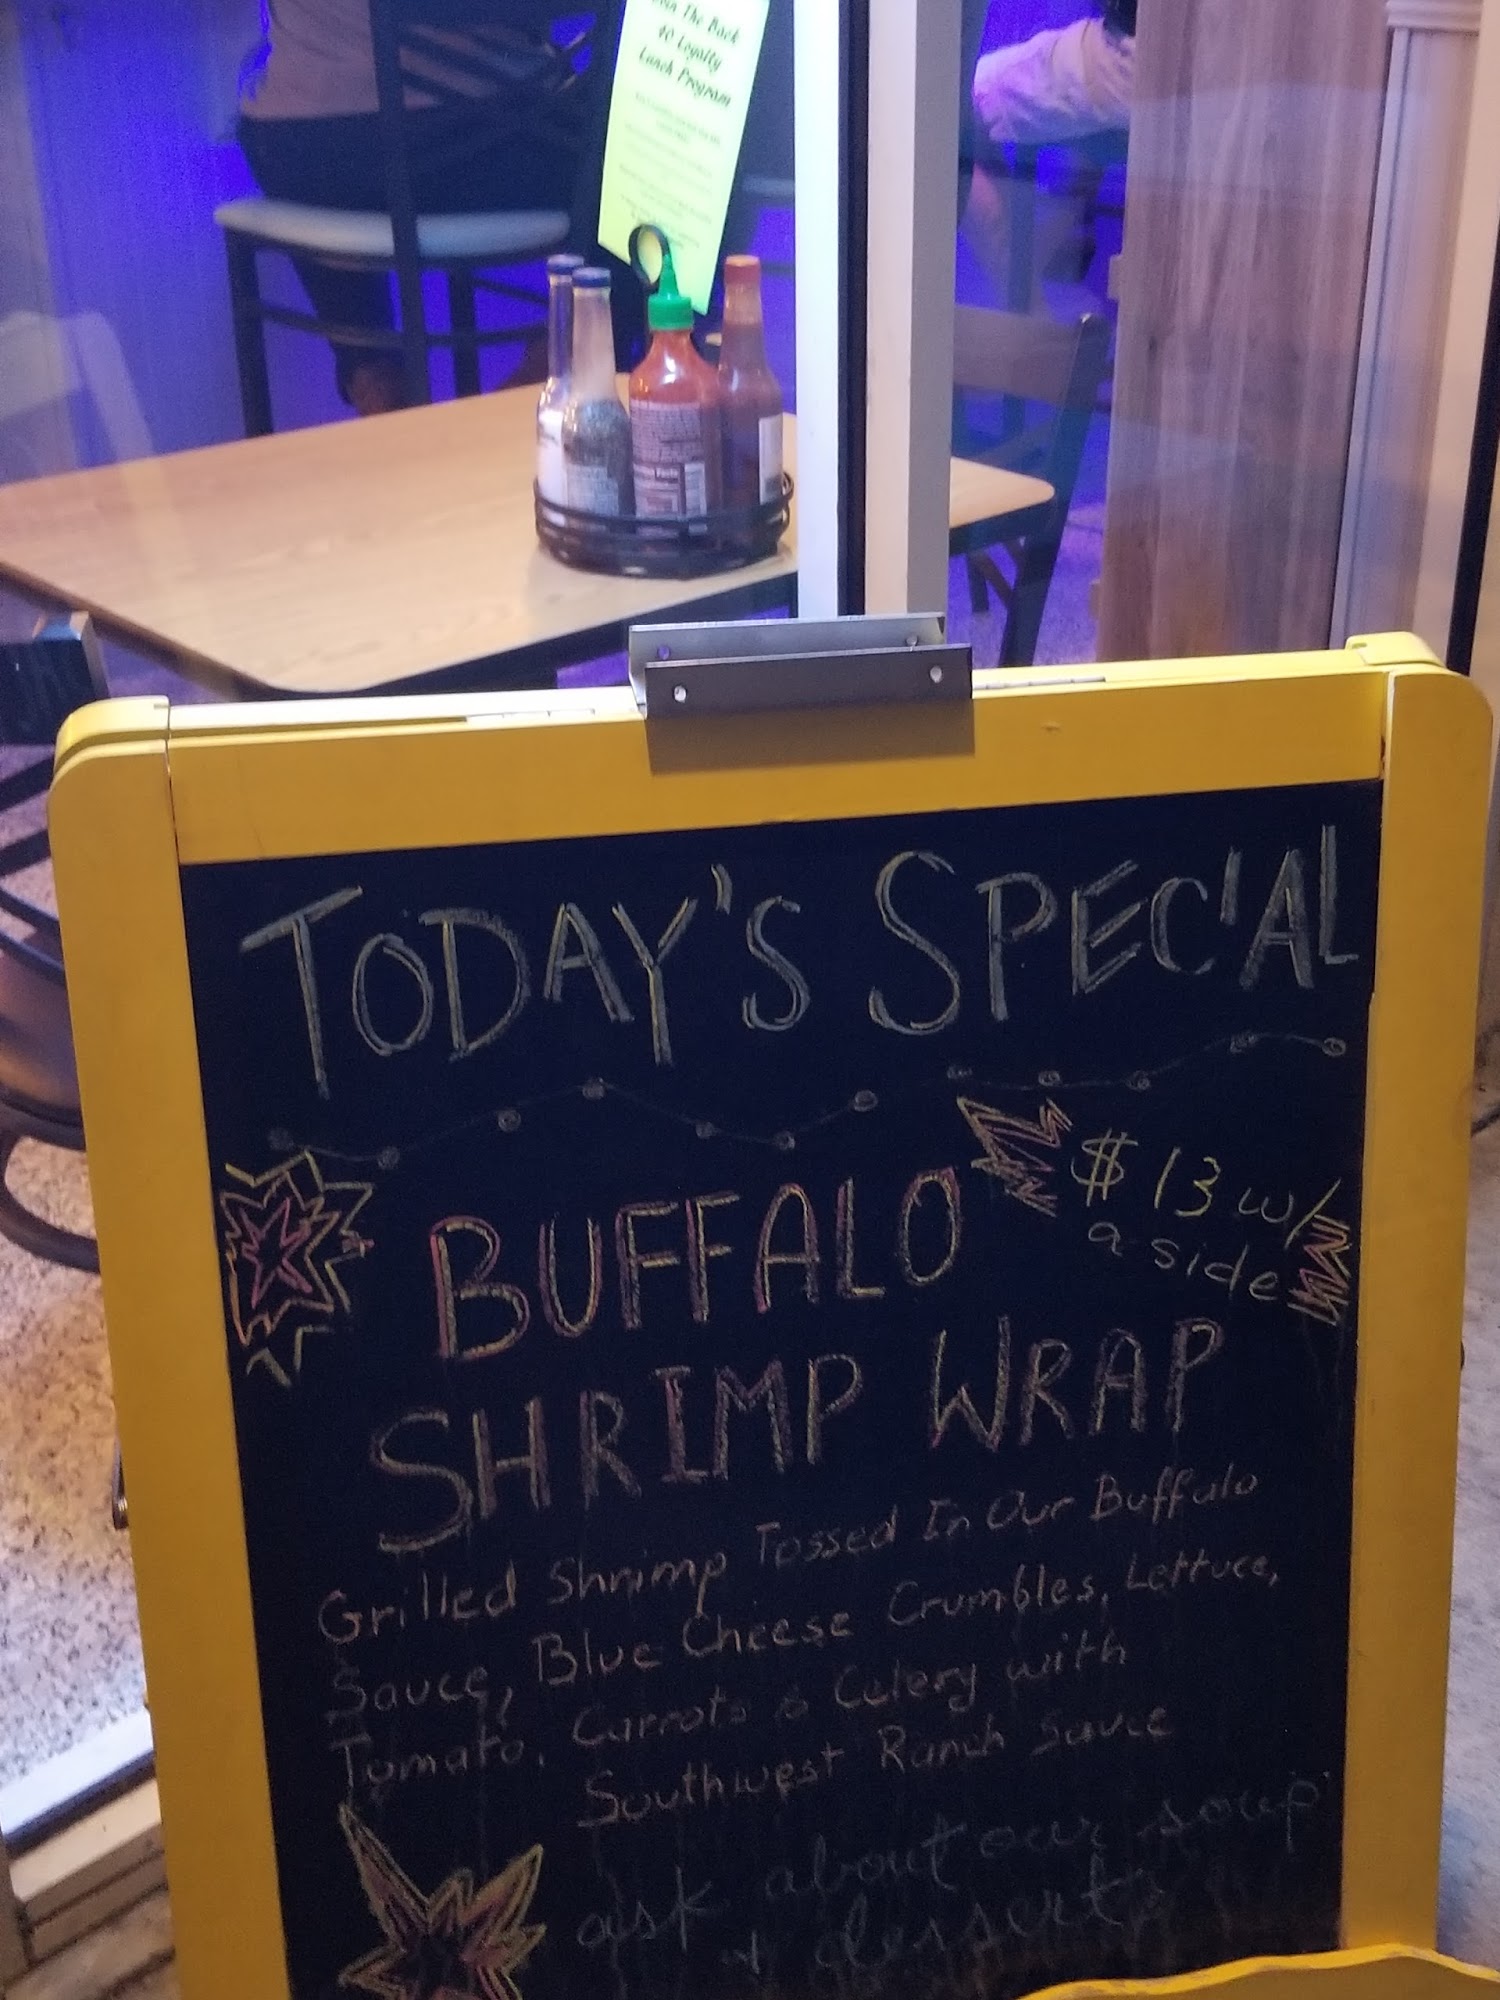 Join The Back
40 Loyalty
Lunch Program
TODAY'S SPECIAL
$13 w/
a side
BUFFALO
SHRIMP WRAP
Grilled Shrimp Tossed In Our Buffalo
Sauce, Blue Cheese Crumbles, Lettuce,
Tomato, Carrots & Celery with
Southwest Ranch Sauce
ask about our soup
+ desserts